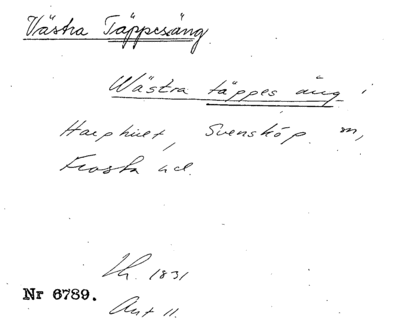 Västra Täppesäng
Wästra täppes äng i
Harphult, Svensköp sn,
Frosta hd.
Lh. 1831
Nr 6789.
Akt 11.